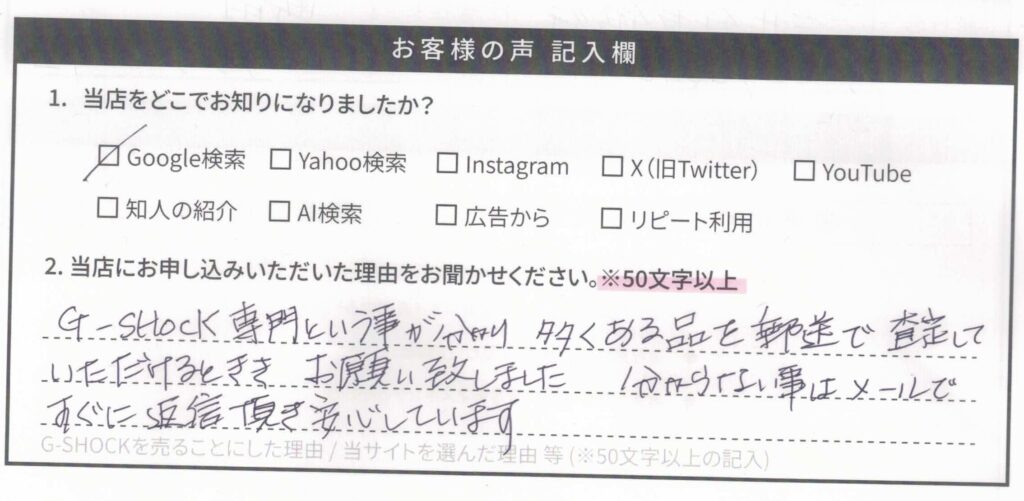 お客様の声 記入欄
1. 当店をどこでお知りになりましたか?
Google検索 Yahoo検索 Instagram X(旧Twitter) YouTube
知人の紹介 AI検索 広告から リピート利用
2. 当店にお申し込みいただいた理由をお聞かせください。※50文字以上
G-SHOCK 専門という事が分かり 多くある品を郵送で 査定して
いただけるときき お願い致しました 分からない事はメールで
すぐに返信頂き安心しています
G-SHOCKを売ることにした理由 / 当サイトを選んだ理由 等 (※50文字以上の記入)